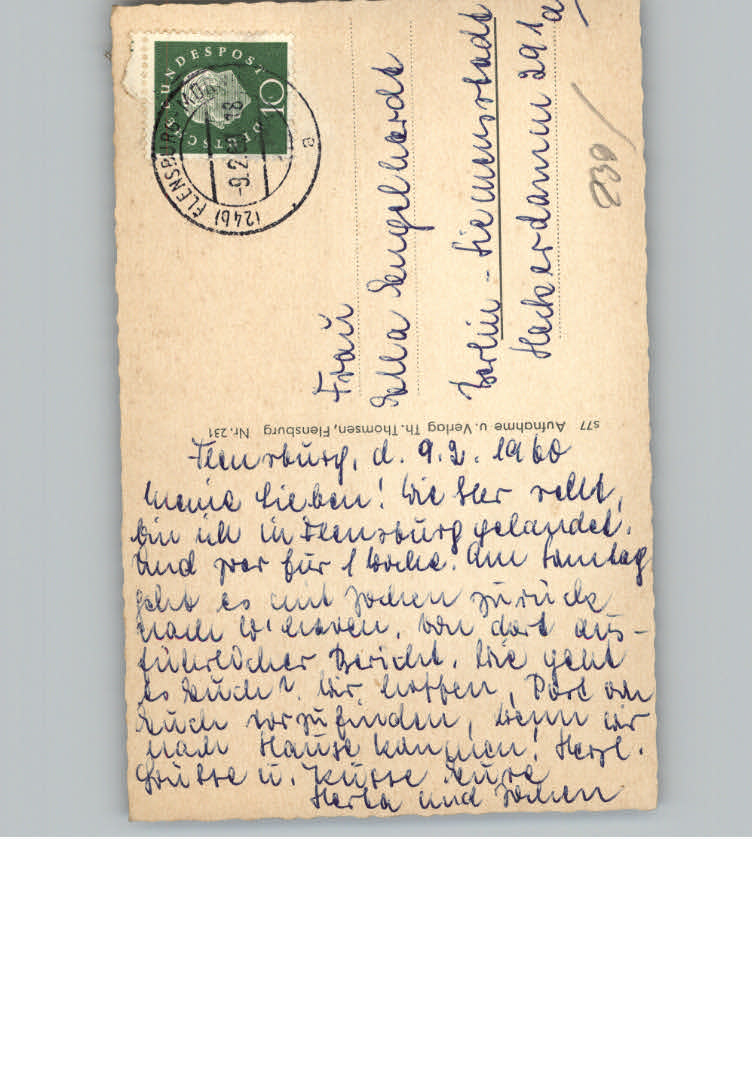 DEUTSCHE BUNDESPOST
10
(24b) FLENSBURG
-9.2.60-18
a
Frau
Ella Engelhardt
Berlin - Siemensstadt
Heckerdamm 291a
230
s77 Aufnahme u. Verlag Th. Thomsen, Flensburg Nr. 231
Flensburg, d. 9.2.1960
Meine Lieben! Wie Ihr seht,
bin ich in Flensburg gelandet.
Und zwar für 1 Woche. Am Samstag
geht es mit Jochen zurück
nach W'haven, von dort aus-
führlicher Bericht. Wie geht
es Euch? Wir hoffen, Post von
Euch vorzufinden, wenn wir
nach Hause kommen! Herzl.
Grüsse u. Küsse Eure
Herta und Jochen